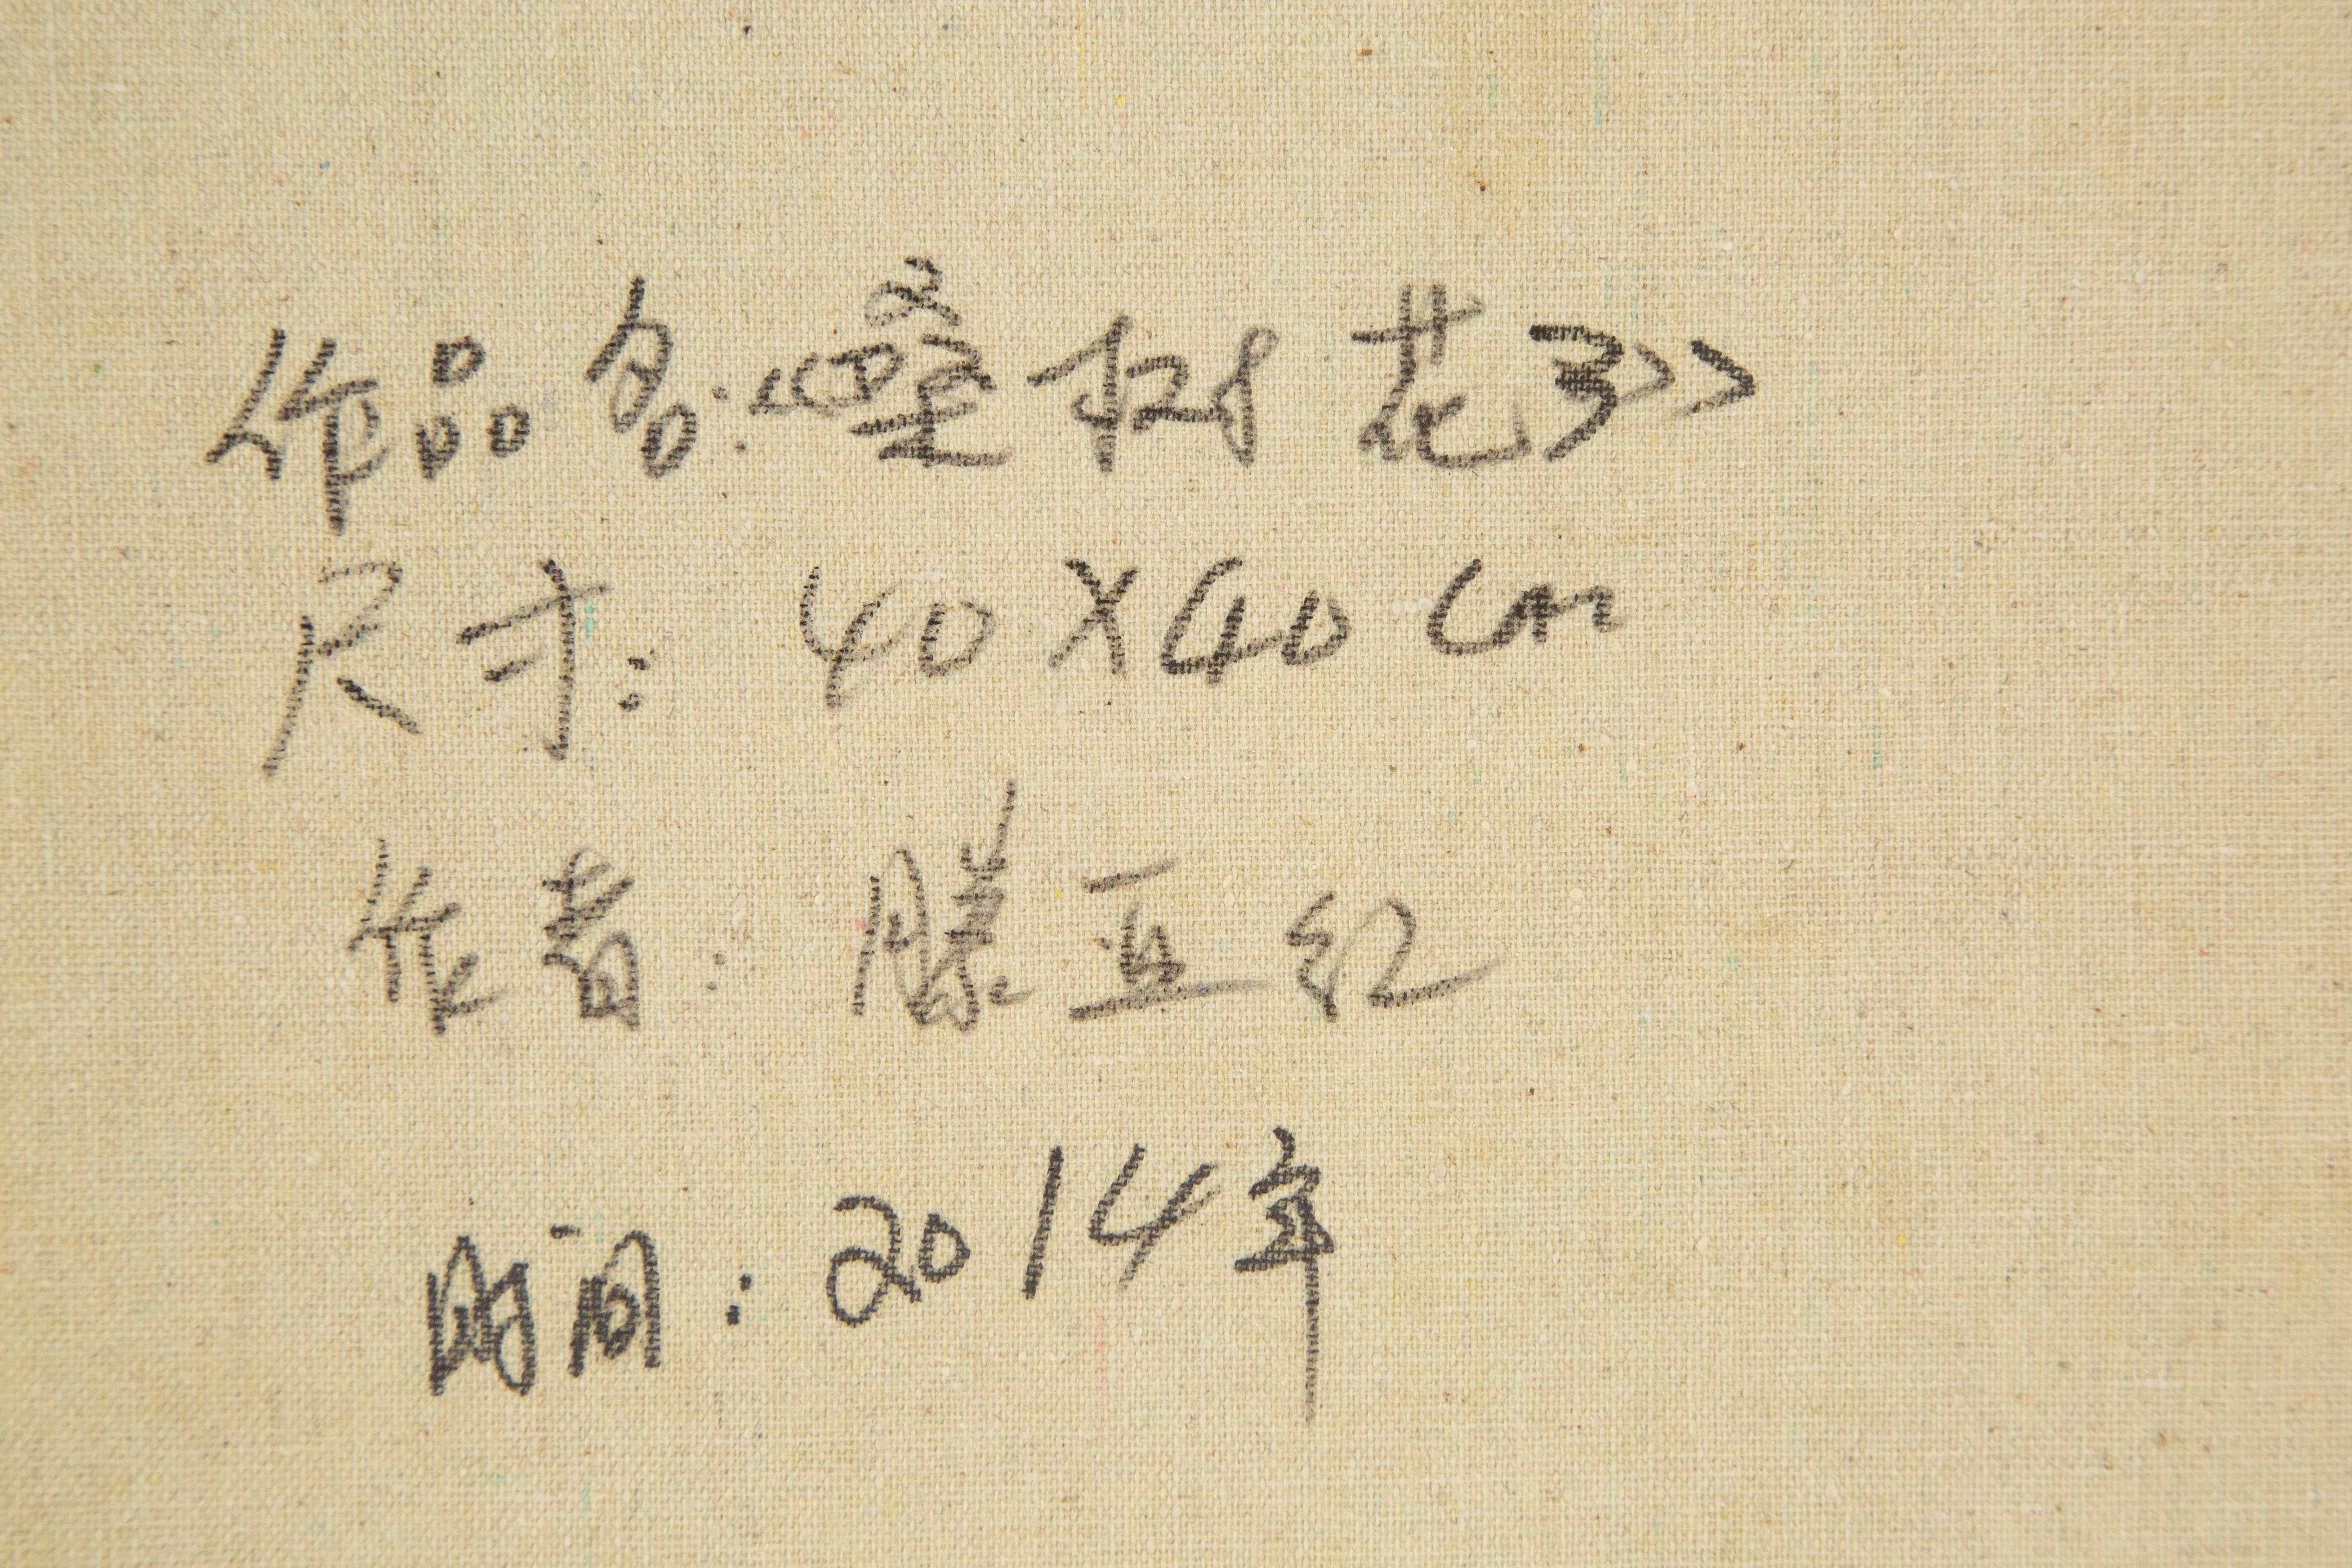 作品名:《蹬杈花3》
尺寸: 40×40cm
作者: 滕亚红
时间: 2014年